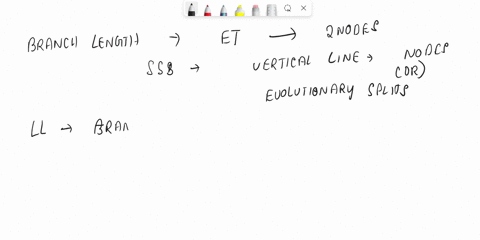 BRANCH LENGTH → ET → 2 NODES
SSB → VERTICAL LINE → NODES
(OR)
EVOLUTIONARY SPLITS
LL → BRAN